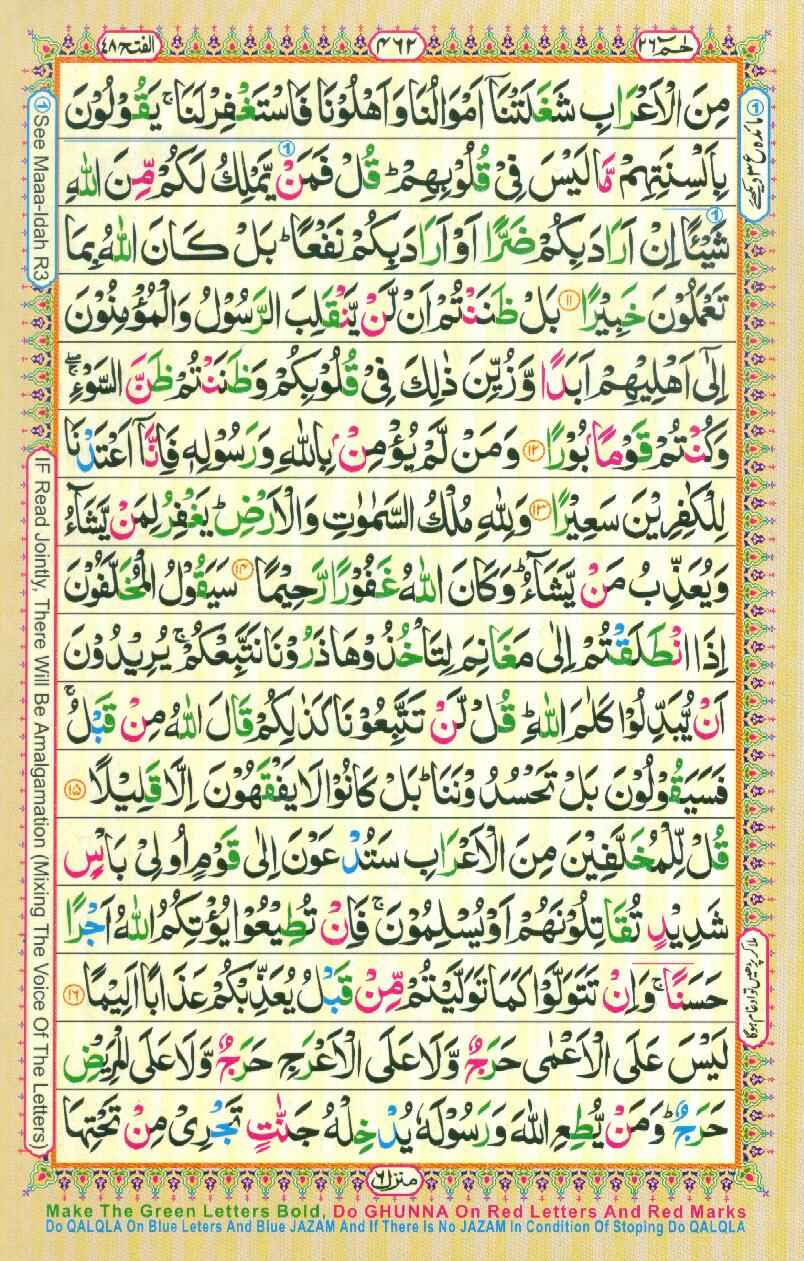 حٰمٓ ٢٦
٤٦٢
الفتح ٤٨
مِنَ الْاَعْرَابِ شَغَلَتْنَاۤ اَمْوَالُنَا وَاَهْلُوْنَا فَاسْتَغْفِرْ لَنَا ۚ يَقُوْلُوْنَ
بِاَلْسِنَتِهِمْ مَّا لَيْسَ فِىْ قُلُوْبِهِمْ ؕ قُلْ فَمَنْ يَّمْلِكُ لَكُمْ مِّنَ اللّٰهِ
شَيْـًٔا اِنْ اَرَادَ بِكُمْ ضَرًّا اَوْ اَرَادَ بِكُمْ نَفْعًا ؕ بَلْ كَانَ اللّٰهُ بِمَا
تَعْمَلُوْنَ خَبِيْرًا ﴿١١﴾ بَلْ ظَنَنْتُمْ اَنْ لَّنْ يَّنْقَلِبَ الرَّسُوْلُ وَالْمُؤْمِنُوْنَ
اِلٰٓى اَهْلِيْهِمْ اَبَدًا وَّزُيِّنَ ذٰلِكَ فِىْ قُلُوْبِكُمْ وَظَنَنْتُمْ ظَنَّ السَّوْءِ ۖۚ
وَكُنْتُمْ قَوْمًاۢ بُوْرًا ﴿١٢﴾ وَمَنْ لَّمْ يُؤْمِنْۢ بِاللّٰهِ وَرَسُوْلِهٖ فَاِنَّاۤ اَعْتَدْنَا
لِلْكٰفِرِيْنَ سَعِيْرًا ﴿١٣﴾ وَلِلّٰهِ مُلْكُ السَّمٰوٰتِ وَالْاَرْضِ ؕ يَغْفِرُ لِمَنْ يَّشَآءُ
وَيُعَذِّبُ مَنْ يَّشَآءُ ؕ وَكَانَ اللّٰهُ غَفُوْرًا رَّحِيْمًا ﴿١٤﴾ سَيَقُوْلُ الْمُخَلَّفُوْنَ
اِذَا انْطَلَقْتُمْ اِلٰى مَغَانِمَ لِتَاْخُذُوْهَا ذَرُوْنَا نَتَّبِعْكُمْ ۚ يُرِيْدُوْنَ
اَنْ يُّبَدِّلُوْا كَلٰمَ اللّٰهِ ؕ قُلْ لَّنْ تَتَّبِعُوْنَا كَذٰلِكُمْ قَالَ اللّٰهُ مِنْ قَبْلُ ۚ
فَسَيَقُوْلُوْنَ بَلْ تَحْسُدُوْنَنَا ؕ بَلْ كَانُوْا لَا يَفْقَهُوْنَ اِلَّا قَلِيْلًا ﴿١٥﴾
قُلْ لِّلْمُخَلَّفِيْنَ مِنَ الْاَعْرَابِ سَتُدْعَوْنَ اِلٰى قَوْمٍ اُولِىْ بَاْسٍ
شَدِيْدٍ تُقَاتِلُوْنَهُمْ اَوْ يُسْلِمُوْنَ ۚ فَاِنْ تُطِيْعُوْا يُؤْتِكُمُ اللّٰهُ اَجْرًا
حَسَنًا ۚ وَاِنْ تَتَوَلَّوْا كَمَا تَوَلَّيْتُمْ مِّنْ قَبْلُ يُعَذِّبْكُمْ عَذَابًا اَلِيْمًا ﴿١٦﴾
لَيْسَ عَلَى الْاَعْمٰى حَرَجٌ وَّلَا عَلَى الْاَعْرَجِ حَرَجٌ وَّلَا عَلَى الْمَرِيْضِ
حَرَجٌ ؕ وَمَنْ يُّطِعِ اللّٰهَ وَرَسُوْلَهٗ يُدْخِلْهُ جَنّٰتٍ تَجْرِىْ مِنْ تَحْتِهَا
① See Maaa-Idah R3
IF Read Jointly, There Will Be Amalgamation (Mixing The Voice Of The Letters)
① مائدہ ع ٣ دیکھئے
ملا کر پڑھیں تو ادغام ہوگا
منزل ٦
Make The Green Letters Bold, Do GHUNNA On Red Letters And Red Marks
Do QALQLA On Blue Leters And Blue JAZAM And If There Is No JAZAM In Condition Of Stoping Do QALQLA